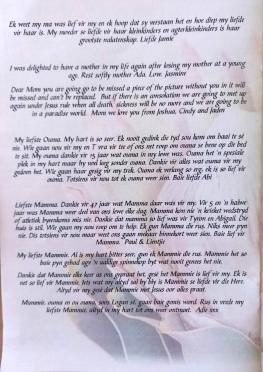 Ek weet my ma was lief vir my en ek hoop dat sy weetstaan het en hoe diep my liefde
vir haar is. My moeder se liefde vir haar kleinkinders en agterkleinkinders is haar
grootste nalatenskap. Liefde Jamie
I was delighted to have a mother in my life again after losing my mother at a young
age. Rest softly mother Ada. Low. Jasmine
Dear Mom you are going to be missed a piece of the picture without you in it will
be missed and can't be replaced. But if there is an consolation we are going to meet up
again under Jesus rule when all death, sickness will be no more and we are going to be
in a paradise world. Mom we love you from Joshua, Cindy and Jaden
My liefste Ouma. My hart is so seer. Ek nooit gedink die tyd sou kom om baai te sê
nie. Wie gaan nou vir my en T vra vir tee of ons net roep om ouma se hoop op die bed
te sit. My ouma dankie vir 15 jaar wat ouma in my lewe was. Ouma het 'n spesiale
plek in my hart maar by weet leeg sonder ouma. Dankie vir alles wat ouma vir my
gedoen het. Wie gaan hoor gesig vir my trek. Ouma ek verlang so erg, ek is so lief vir
ouma. Totsiens vir nou tot ek ouma weer sien. Baie liefde Abi
Liefste Mamma. Dankie vir 47 jaar wat Mamma daar was vir my. Vir 5 en 'n halwe
jaar was Mamma weer deel van ons lewe elke dag. Mamma kon nie 'n krieket wedstryd
of atletiek byeenkoms mis nie. Dankie dat mamma so lief was vir Tyron en Abigail. Die
huis is stil. Wie gaan my nou roep om te help. Ek gun Mamma die rus. Niks meer pyn
nie. Dis totsiens vir nou maar weet ons gaan mekaar binnekort weer sien. Baie lief vir
Mamma. Paul & Lientjie
My liefste Mammie. Al is my hart bitter seer, gun ek Mammie die rus. Mammie het so
baie pyn gehad oor 'n aaklige spinnekop byt wat nooit genees het nie.
Dankie dat Mammie elke keer as ons gepraat het, gesê het Mammie is lief vir my. Ek is
net so lief vir Mammie. Iets wat my altyd sal by bly is Mammie se liefde vir die Here.
Altyd vir my gesê dat Mammie met Jesus oor alles praat.
Mammie, ouma en ou ouma, soos Logan sê, gaan baie gemis word. Rus in vrede my
liefste Mammie, altyd in my hart tot ons weer ontmoet. Adie xxx